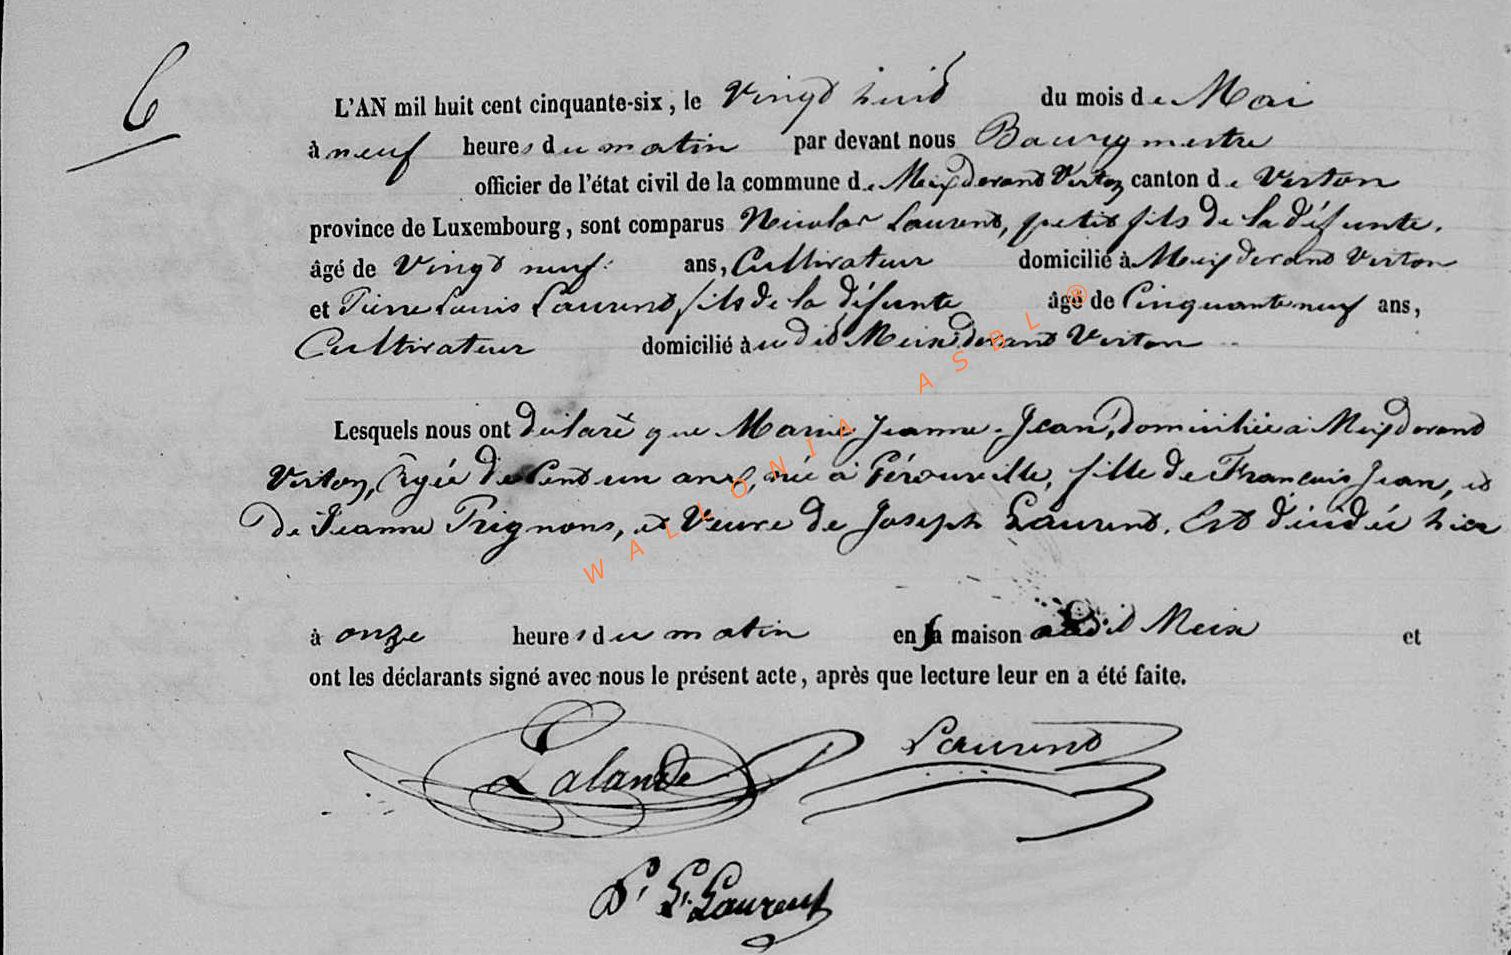 6
L'AN mil huit cent cinquante-six, le Vingt huit du mois de Mai
à neuf heures du matin par devant nous Bourgmestre
officier de l'état civil de la commune de Meix devant Virton canton de Virton
province de Luxembourg, sont comparus Nicolas Laurent, petit fils de la défunte.
âgé de Vingt neuf ans, Cultivateur domicilié à Meix devant Virton
et Pierre Louis Laurent fils de la défunte âgé de Cinquante neuf ans,
Cultivateur domicilié audit Meix devant Virton
Lesquels nous ont déclaré que Marie Jeanne Jean, domiciliée à Meix devant
Virton, Âgée de Cent un ans, née à Gérouville, fille de François Jean, et
de Jeanne Prignons, et Veuve de Joseph Laurent. Est décédée hier
à onze heures du matin en sa maison audit Meix et
ont les déclarants signé avec nous le présent acte, après que lecture leur en a été faite.
Lalande Laurent
P. L. Laurent
WALLONIA ASBL ®